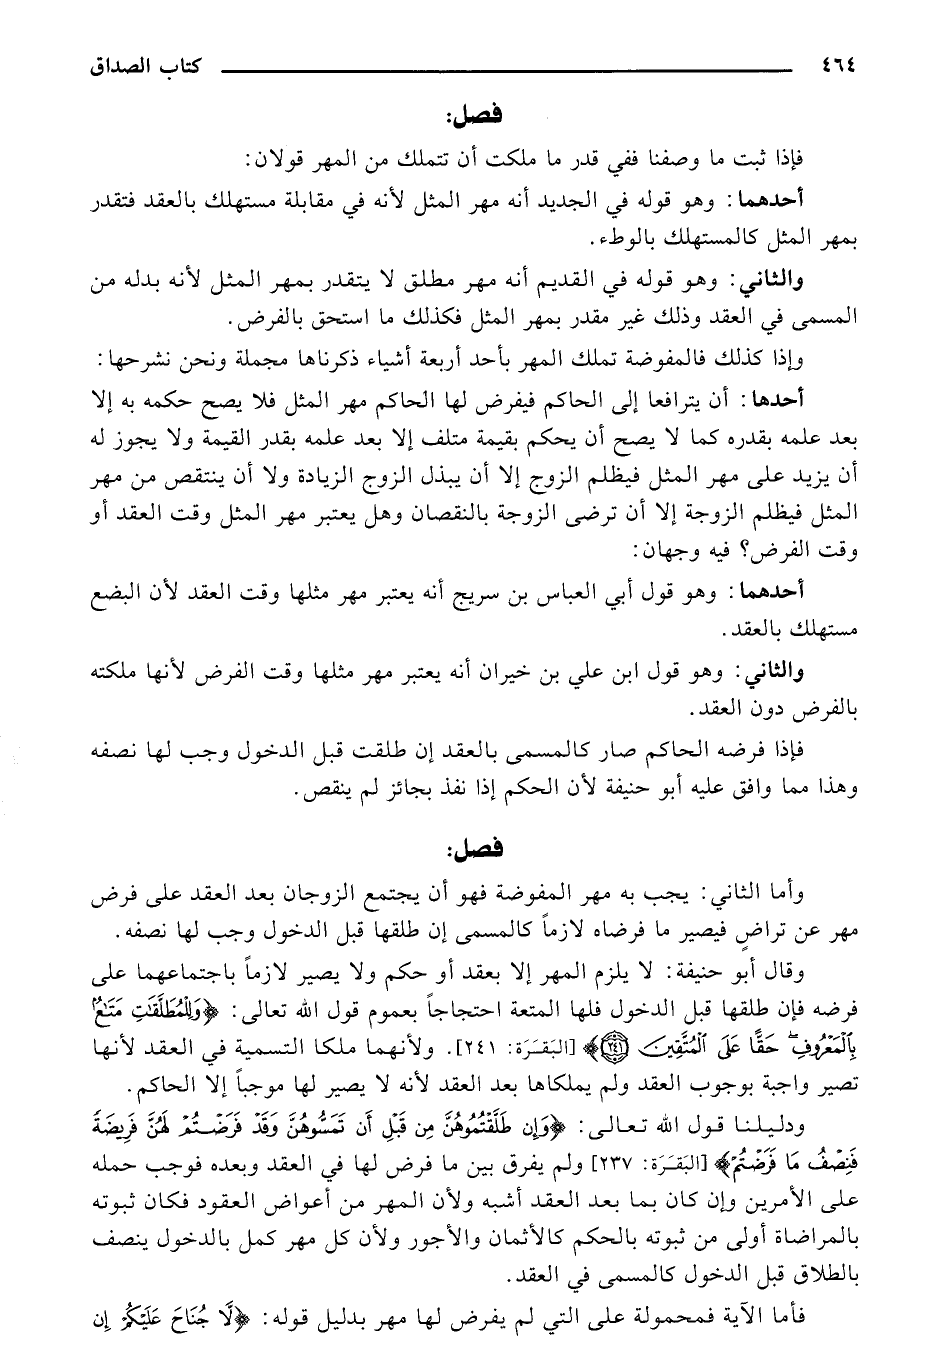 ٤٦٤ كتاب الصداق
فصل:
فإذا ثبت ما وصفنا ففي قدر ما ملكت أن تتملك من المهر قولان:
أحدهما: وهو قوله في الجديد أنه مهر المثل لأنه في مقابلة مستهلك بالعقد فتقدر
بمهر المثل كالمستهلك بالوطء.
والثاني: وهو قوله في القديم أنه مهر مطلق لا يتقدر بمهر المثل لأنه بدله من
المسمى في العقد وذلك غير مقدر بمهر المثل فكذلك ما استحق بالفرض.
وإذا كذلك فالمفوضة تملك المهر بأحد أربعة أشياء ذكرناها مجملة ونحن نشرحها:
أحدها: أن يترافعا إلى الحاكم فيفرض لها الحاكم مهر المثل فلا يصح حكمه به إلا
بعد علمه بقدره كما لا يصح أن يحكم بقيمة متلف إلا بعد علمه بقدر القيمة ولا يجوز له
أن يزيد على مهر المثل فيظلم الزوج إلا أن يبذل الزوج الزيادة ولا أن ينتقص من مهر
المثل فيظلم الزوجة إلا أن ترضى الزوجة بالنقصان وهل يعتبر مهر المثل وقت العقد أو
وقت الفرض؟ فيه وجهان:
أحدهما: وهو قول أبي العباس بن سريج أنه يعتبر مهر مثلها وقت العقد لأن البضع
مستهلك بالعقد.
والثاني: وهو قول ابن علي بن خيران أنه يعتبر مهر مثلها وقت الفرض لأنها ملكته
بالفرض دون العقد.
فإذا فرضه الحاكم صار كالمسمى بالعقد إن طلقت قبل الدخول وجب لها نصفه
وهذا مما وافق عليه أبو حنيفة لأن الحكم إذا نفذ بجائز لم ينقص.
فصل:
وأما الثاني: يجب به مهر المفوضة فهو أن يجتمع الزوجان بعد العقد على فرض
مهر عن تراضٍ فيصير ما فرضاه لازماً كالمسمى إن طلقها قبل الدخول وجب لها نصفه.
وقال أبو حنيفة: لا يلزم المهر إلا بعقد أو حكم ولا يصير لازماً باجتماعهما على
فرضه فإن طلقها قبل الدخول فلها المتعة احتجاجاً بعموم قول الله تعالى: ﴿وَلِلْمُطَلَّقَٰتِ مَتَٰعٌۢ
بِٱلْمَعْرُوفِۖ حَقًّا عَلَى ٱلْمُتَّقِينَ ٢٤١﴾ [البَقَرَة: ٢٤١]. ولأنهما ملكا التسمية في العقد لأنها
تصير واجبة بوجوب العقد ولم يملكاها بعد العقد لأنه لا يصير لها موجباً إلا الحاكم.
ودليلنا قول الله تعالى: ﴿وَإِن طَلَّقْتُمُوهُنَّ مِن قَبْلِ أَن تَمَسُّوهُنَّ وَقَدْ فَرَضْتُمْ لَهُنَّ فَرِيضَةً
فَنِصْفُ مَا فَرَضْتُمْ﴾ [البَقَرَة: ٢٣٧] ولم يفرق بين ما فرض لها في العقد وبعده فوجب حمله
على الأمرين وإن كان بما بعد العقد أشبه ولأن المهر من أعواض العقود فكان ثبوته
بالمراضاة أولى من ثبوته بالحكم كالأثمان والأجور ولأن كل مهر كمل بالدخول ينصف
بالطلاق قبل الدخول كالمسمى في العقد.
فأما الآية فمحمولة على التي لم يفرض لها مهر بدليل قوله: ﴿لَّا جُنَاحَ عَلَيْكُمْ إِن